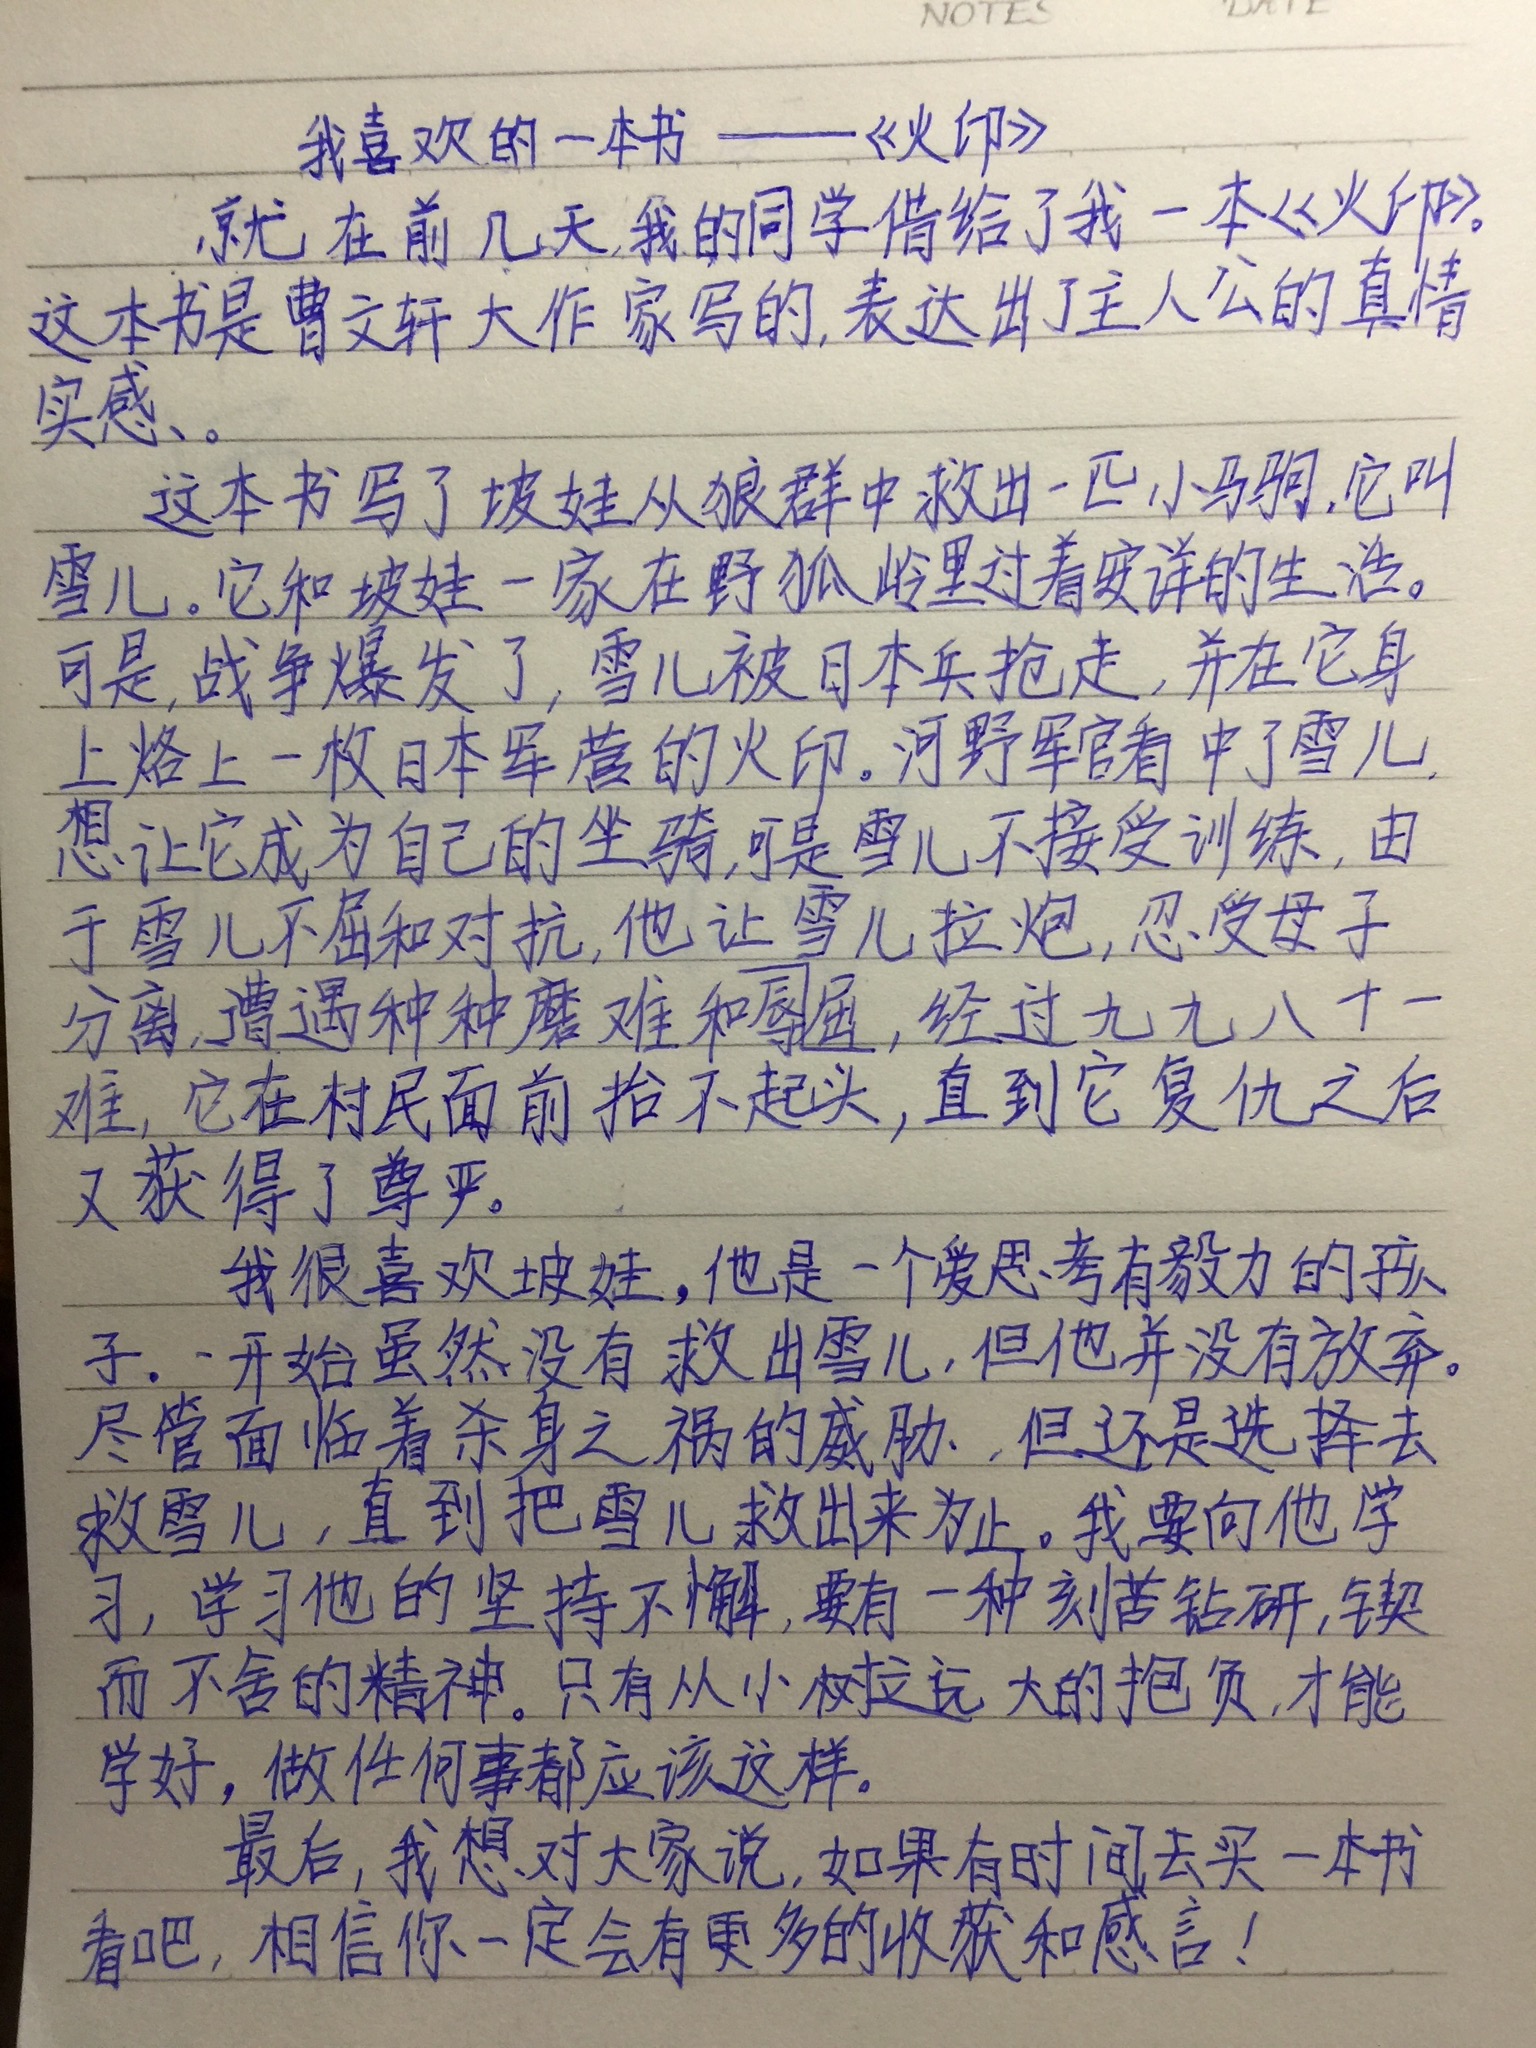 NOTES DATE
我喜欢的一本书——《火印》
就在前几天,我的同学借给了我一本《火印》。
这本书是曹文轩大作家写的,表达出了主人公的真情
实感、。
这本书写了坡娃从狼群中救出一匹小马驹,它叫
雪儿。它和坡娃一家在野狐岭里过着安详的生活。
可是,战争爆发了,雪儿被日本兵抢走,并在它身
上烙上一枚日本军营的火印。河野军官看中了雪儿,
想让它成为自己的坐骑,可是雪儿不接受训练,由
于雪儿不屈和对抗,他让雪儿拉炮,忍受母子
分离,遭遇种种磨难和辱屈,经过九九八十一
难,它在村民面前抬不起头,直到它复仇之后
又获得了尊严。
我很喜欢坡娃,他是一个爱思考有毅力的孩
子。一开始虽然没有救出雪儿,但他并没有放弃。
尽管面临着杀身之祸的威胁,但还是选择去
救雪儿,直到把雪儿救出来为止。我要向他学
习,学习他的坚持不懈,要有一种刻苦钻研,锲
而不舍的精神。只有从小树立远大的抱负,才能
学好,做任何事都应该这样。
最后,我想对大家说,如果有时间去买一本书
看吧,相信你一定会有更多的收获和感言!